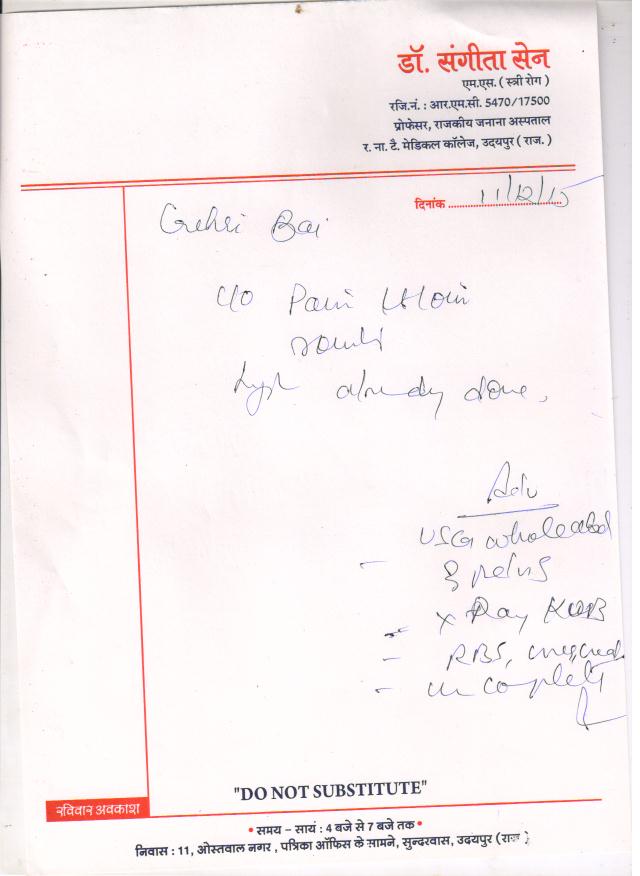 डॉ. संगीता सेन
एम.एस. ( स्त्री रोग )
रजि.नं. : आर.एम.सी. 5470/17500
प्रोफेसर, राजकीय जनाना अस्पताल
र. ना. टै. मेडिकल कॉलेज, उदयपुर ( राज. )
दिनांक 11/12/15
Bai
c/o Pain
already done,
Adv
USG whole abd
& pelvis
- X Ray KUB
- RBS,
-
"DO NOT SUBSTITUTE"
रविवार अवकाश
• समय – सायं : 4 बजे से 7 बजे तक •
निवास : 11, ओस्तवाल नगर , पत्रिका ऑफिस के सामने, सुन्दरवास, उदयपुर (राज )